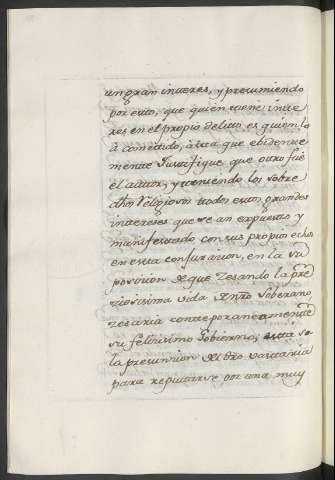 un gran interes, y presumiendo
por esto, que quien tiene inte
res en el propio delito es quien lo
á cometido, ásta que ebidente
mente Justifique que otro fué
el autor, y teniendo los sobre
dhos Religiosos todos estos grandes
intereses que se an expuesto y
manifestado con sus propios echos
en esta conjuracion, en la su
posicion de que Zesando la pre
ziosissima vida de nro Soberano
zesaria contemporaneamente
su felicissimo Gobierno, esta so
la presuncion de dro vastaria
para reputarse por una muy